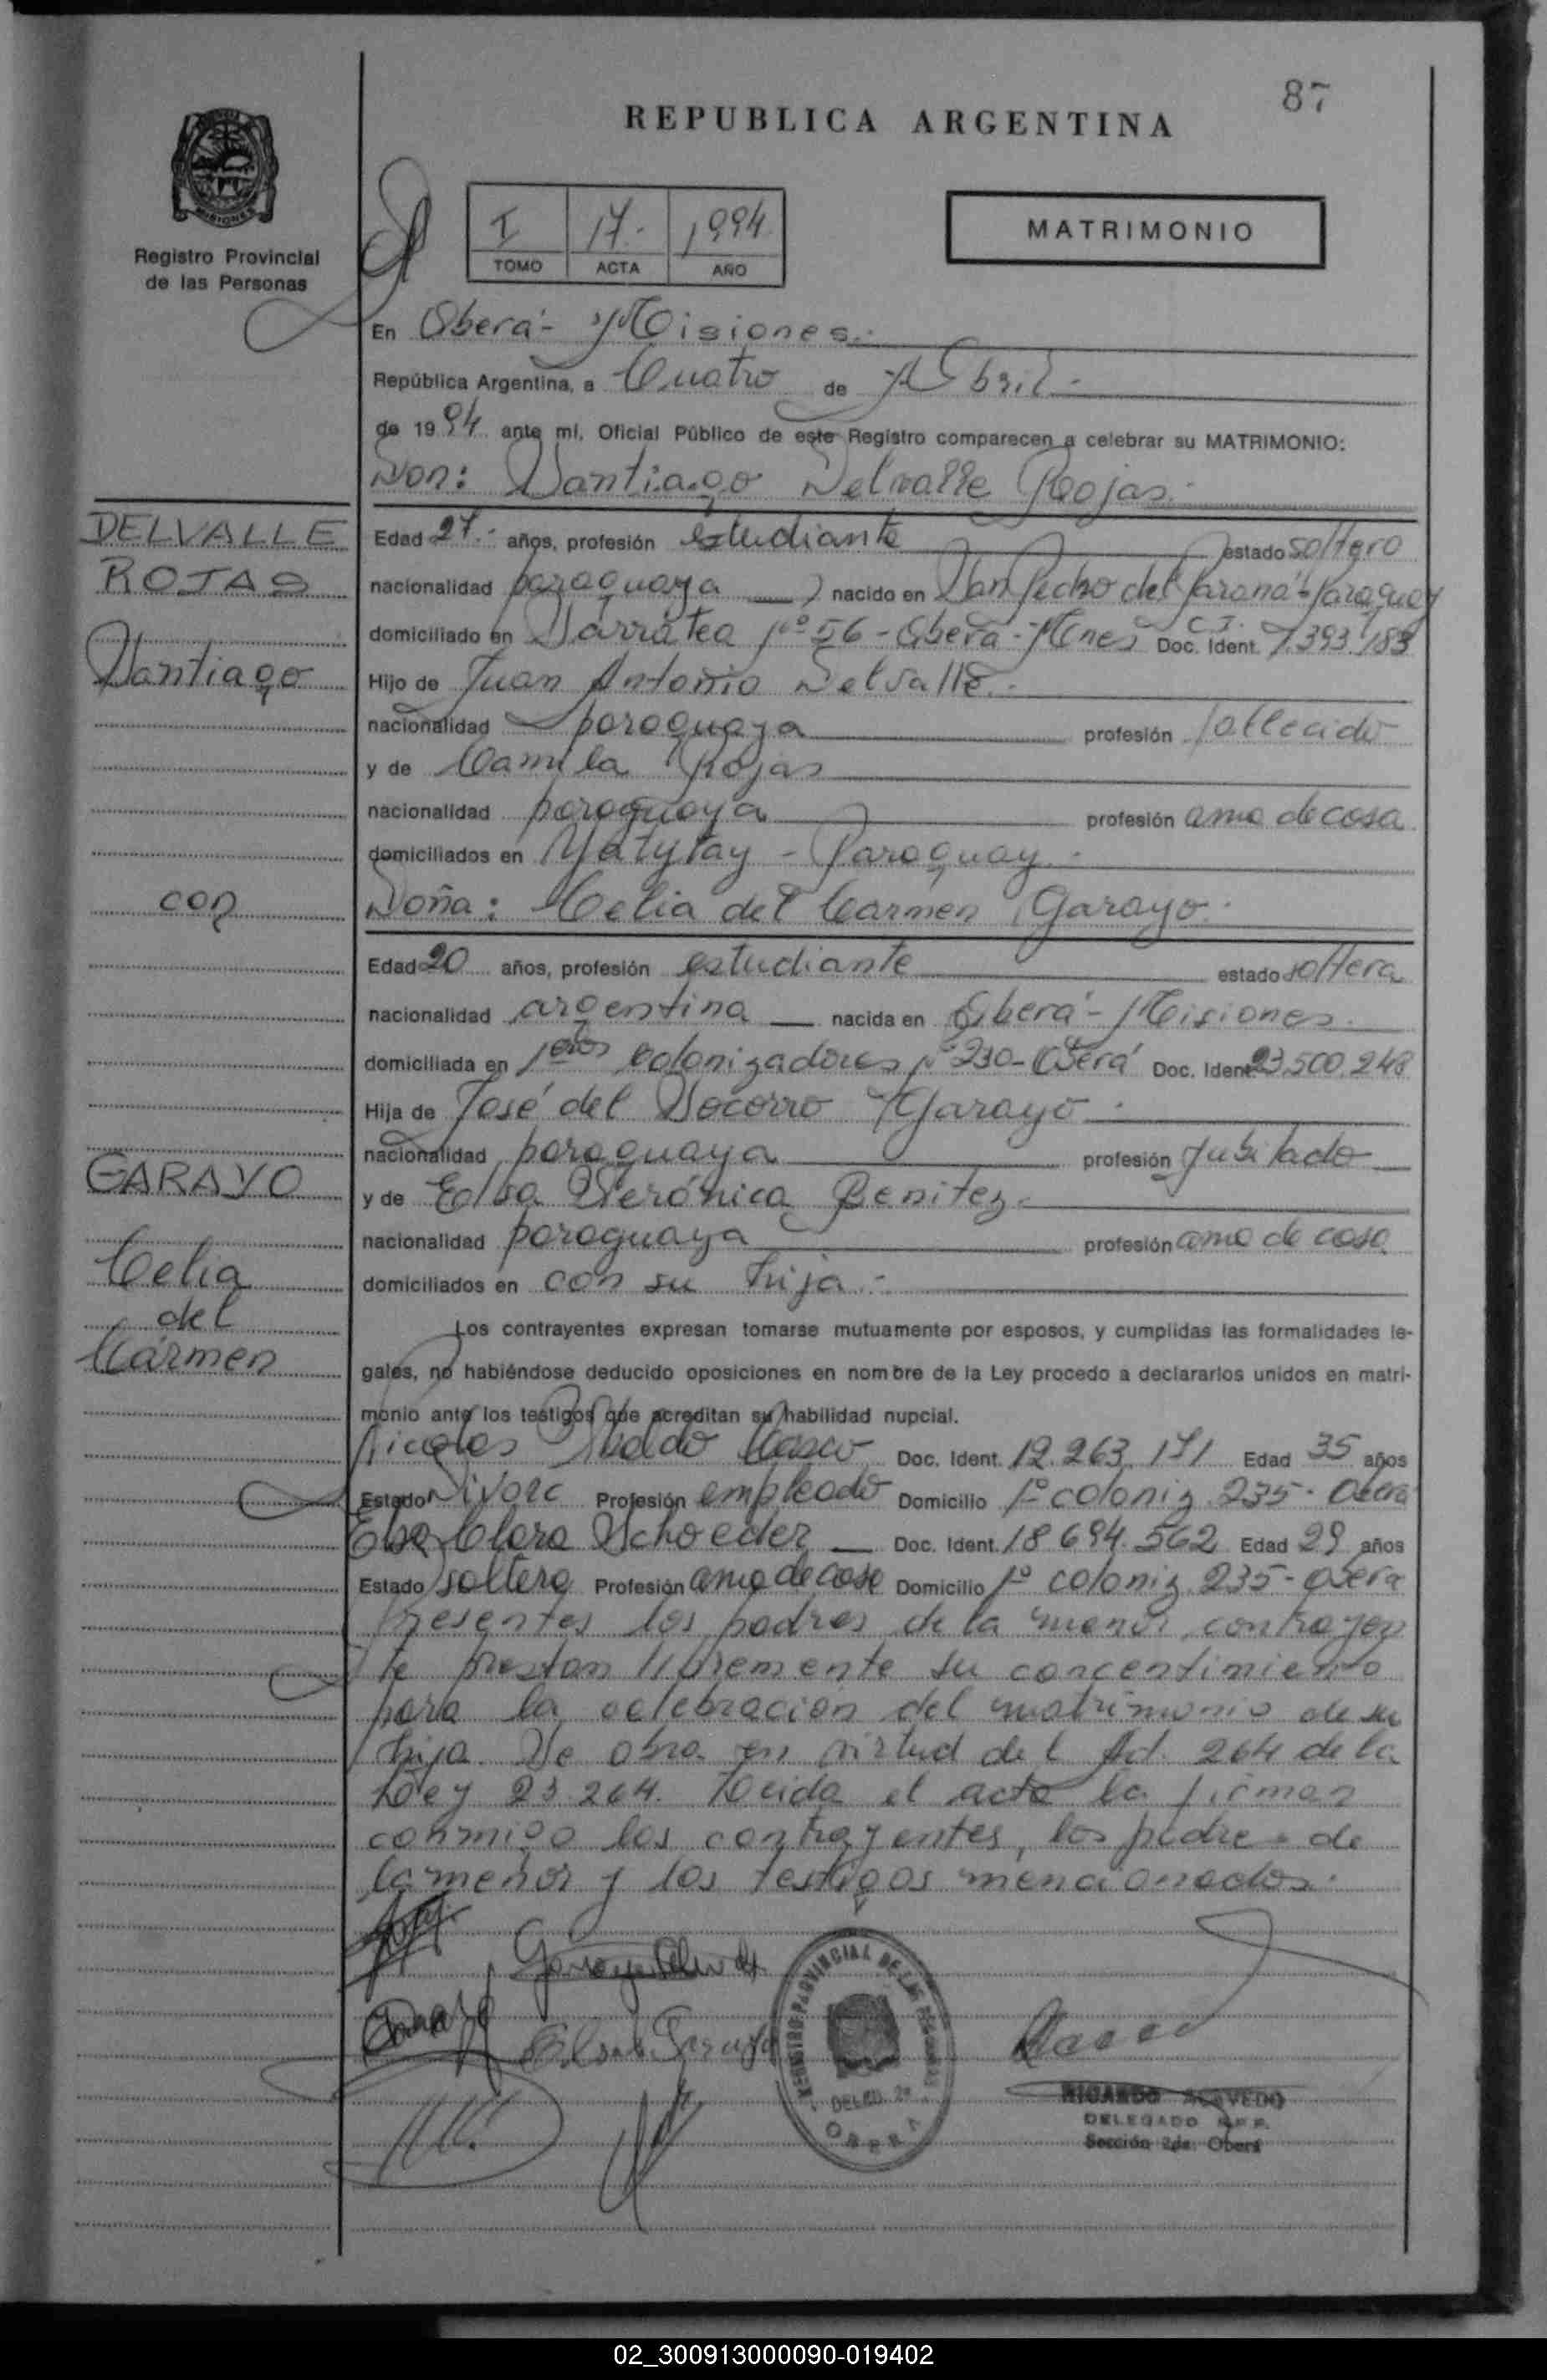 87
REPUBLICA ARGENTINA
MISIONES
Registro Provincial
de las Personas
I 17.- 1994
TOMO ACTA AÑO
MATRIMONIO
En Oberá- Misiones.-
República Argentina, a Cuatro de Abril.-
de 1994 ante mí, Oficial Público de este Registro comparecen a celebrar su MATRIMONIO:
Don: Santiago Delvalle Rojas.-
DELVALLE
ROJAS
Santiago
Edad 27.- años, profesión estudiante estado soltero
nacionalidad paraguaya nacido en San Pedro del Paraná-Paraguay
domiciliado en Barratea Nº 56-Oberá-Mnes C.I. Doc. Ident. 7.393.183
Hijo de Juan Antonio Delvalle.-
nacionalidad paraguaya profesión fallecido
y de Camila Rojas
nacionalidad paraguaya profesión ama de casa
domiciliados en Yatytay - Paraguay.-
con
Doña: Celia del Carmen Garayo.-
Edad 20 años, profesión estudiante estado soltera
nacionalidad argentina nacida en Oberá- Misiones.
domiciliada en 1eros colonizadores Nº 230-Oberá Doc. Ident. 23.500.248
Hija de José del Socorro Garayo.-
nacionalidad paraguaya profesión jubilado
y de Elsa Verónica Benitez.-
nacionalidad paraguaya profesión ama de casa
domiciliados en con su hija.-
GARAYO
Celia
del
Cármen
Los contrayentes expresan tomarse mutuamente por esposos, y cumplidas las formalidades le-
gales, no habiéndose deducido oposiciones en nombre de la Ley procedo a declararlos unidos en matri-
monio ante los testigos que acreditan su habilidad nupcial.
Nicolas Casco Doc. Ident. 12.263.171 Edad 35 años
Estado Divorc Profesión empleado Domicilio 1º coloniz 235- Oberá
Elsa Clara Schoeder Doc. Ident. 18.694.562 Edad 29 años
Estado soltera Profesión ama de casa Domicilio 1º coloniz 235-Oberá
Presentes los padres de la menor contrayen
te prestan libremente su concentimiento
para la celebración del matrimonio de su
hija. Se obra en virtud del Art. 264 de la
Ley 23.264. Leida el acta la firman
conmigo los contrayentes, los padres de
la menor y los testigos mencionados.-
REGISTRO PROVINCIAL DE LAS PERSONAS
DELEG. 2ª
OBERA
RICARDO ACEVEDO
DELEGADO R.P.P.
Sección 2da. Oberá
02_300913000090-019402